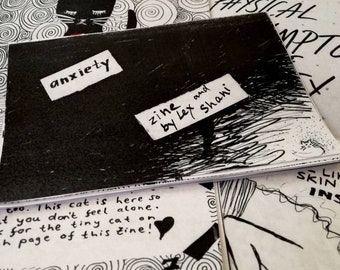 anxiety
zine
by Lex and
Shani
PHYSICAL
too. This cat is here so
you don't feel alone.
for the tiny cat on
page of this zine!
LI
SKIN
INS